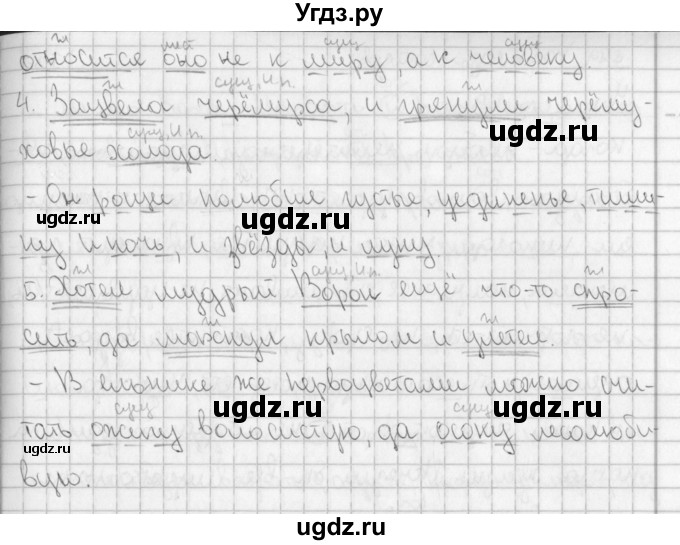 Угдз.ру
гл мест сущ сущ
относится оно не к миру, а к человеку.
гл сущ, И.п. гл
4. Зацвела черёмуха, и грянули черёму-
сущ, И.п.
ховые холода.
ugdz.ru
- Он рощи полюбил густые, уединенье, тиши-
ugdz.ru
ну, и ночь, и звёзды, и луну.
гл сущ, И.п. гл
5. Хотел мудрый Ворон ещё что-то спро-
гл гл
сить, да махнул крылом и улетел.
ugdz.ru
- В ельнике же первоцветами можно счи-
ugdz.ru
сущ сущ
тать ожику волосистую, да осоку лесолюби-
вую.
ugdz.ru